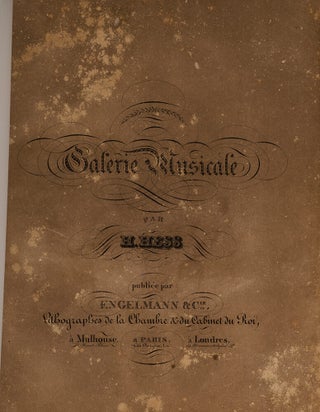 Galerie Musicale
PAR
H. HESS
publiée par
ENGELMANN & Cie.
Lithographes de la Chambre & du Cabinet du Roi,
à Mulhouse. à PARIS. à Londres.